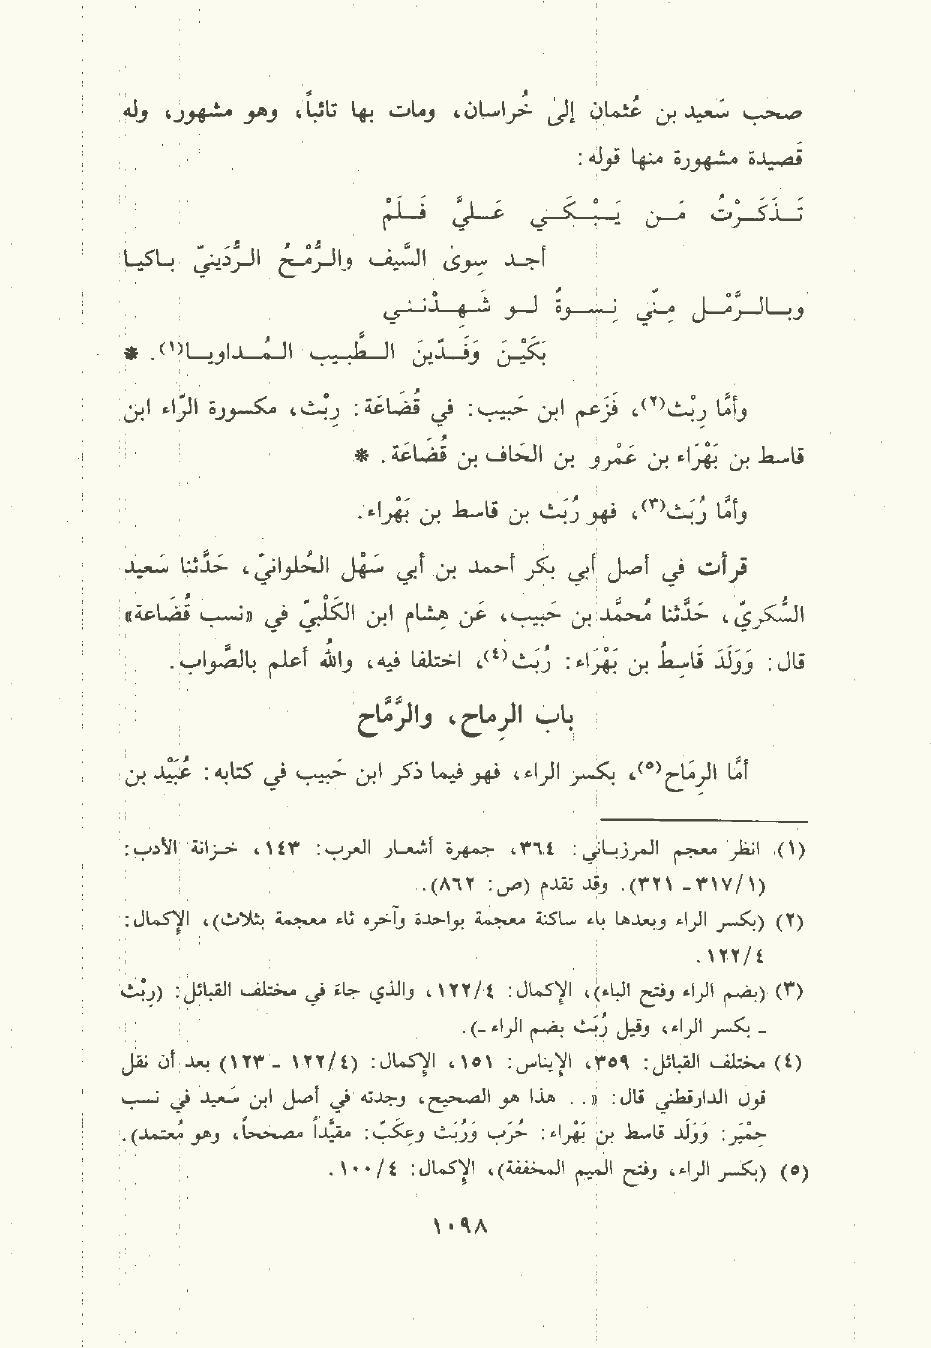 صحب سَعيد بن عُثمان إلى خُراسان، ومات بها تائباً، وهو مشهور، وله
قَصيدة مشهورة منها قوله:
تَــذَكَــرْتُ مَــن يَــبْــكَــي عَــلـيَّ فَــلَـمْ
أجــد سِوىٰ السَّيـف والـرُّمْـحُ الـرُّدَينيّ بـاكيـا
وبــالــرَّمْــل مِــنّي نِــســوةٌ لــو شَــهِــدْنَــنــي
بَكَيْـنَ وَفَــدّينَ الـطَّـبـيـب الـمُــداويــا(١). *
وأمَّا رِبْث(٢)، فَزَعم ابن حَبيب: في قُضَاعَة: رِبْث، مكسورة الرَّاء ابن
قاسط بن بَهْرَاء بن عَمْرو بن الحَاف بن قُضَاعَة. *
وأمَّا رُبَث(٣)، فهو رُبَث بن قاسط بن بَهْراء.
قرأت في أصل أبي بكر أحمد بن أبي سَهْل الحُلوانيّ، حَدَّثنا سَعيد
السُّكريّ، حَدَّثنا مُحمَّد بن حَبيب، عَن هِشام ابن الكَلْبيّ في «نسب قُضَاعة»
قال: وَوَلَدَ قَاسِطُ بن بَهْرَاء: رُبَث(٤)، اختلفا فيه، والله أعلم بالصَّواب.
باب الرِماح، والرَّمَّاح
أمَّا الرِمَاح(٥)، بكسر الراء، فهو فيما ذكر ابن حَبيب في كتابه: عُبَيْد بن
(١) انظر معجم المرزبـاني: ٣٦٤، جمهرة أشعـار العرب: ١٤٣، خـزانة الأدب:
(٣١٧/١- ٣٢١). وقد تقدم (ص: ٨٦٢).
(٢) (بكسر الراء وبعدها باء ساكنة معجمة بواحدة وآخره ثاء معجمة بثلاث)، الإكمال:
١٢٢/٤.
(٣) (بضم الراء وفتح الباء)، الإكمال: ١٢٢/٤، والذي جاء في مختلف القبائل: (رِبْث
- بكسر الراء، وقيل رُبَث بضم الراء -).
(٤) مختلف القبائل: ٣٥٩، الإيناس: ١٥١، الإكمال: (١٢٢/٤ - ١٢٣) بعد أن نقل
قول الدارقطني قال: «.. هذا هو الصحيح، وجدته في أصل ابن سَعيد في نسب
حِمْيَر: وَوَلَد قاسط بن بَهْراء: حُرَب وَرُبَث وعِكَبّ: مقيَّداً مصححاً، وهو مُعتمد).
(٥) (بكسر الراء، وفتح الميم المخففة)، الإكمال: ١٠٠/٤.
١٠٩٨